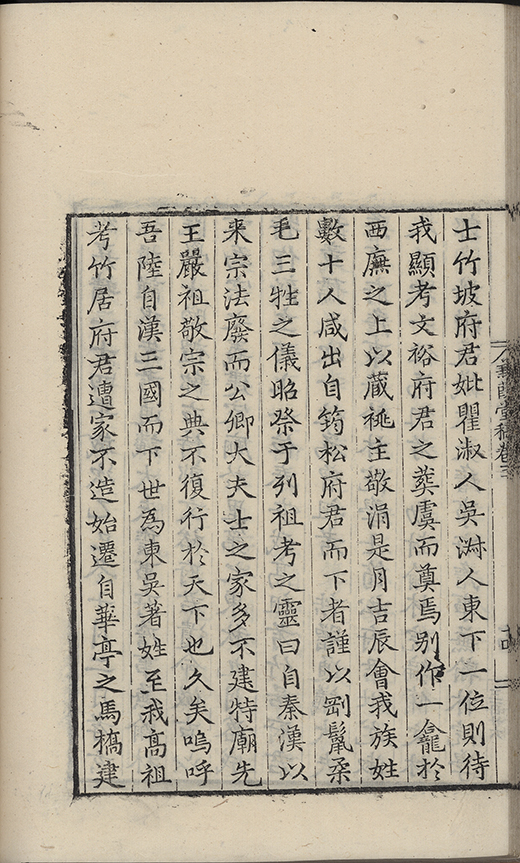 士竹坡府君妣瞿淑人吳淑人東下一位則待
我顯考文裕府君之葬虞而奠焉别作一龕於
西廡之上以蔵祧主敬涓是月吉辰會我族姓
數十人咸出自筠松府君而下者謹以剛鬣柔
毛三牲之儀昭祭于列祖考之靈曰自秦漢以
来宗法廢而公卿大夫士之家多不建特廟先
王嚴祖敬宗之典不復行於天下也久矣嗚呼
吾陸自漢三國而下世為東吳著姓至我髙祖
考竹居府君遭家不造始遷自華亭之馬橋建